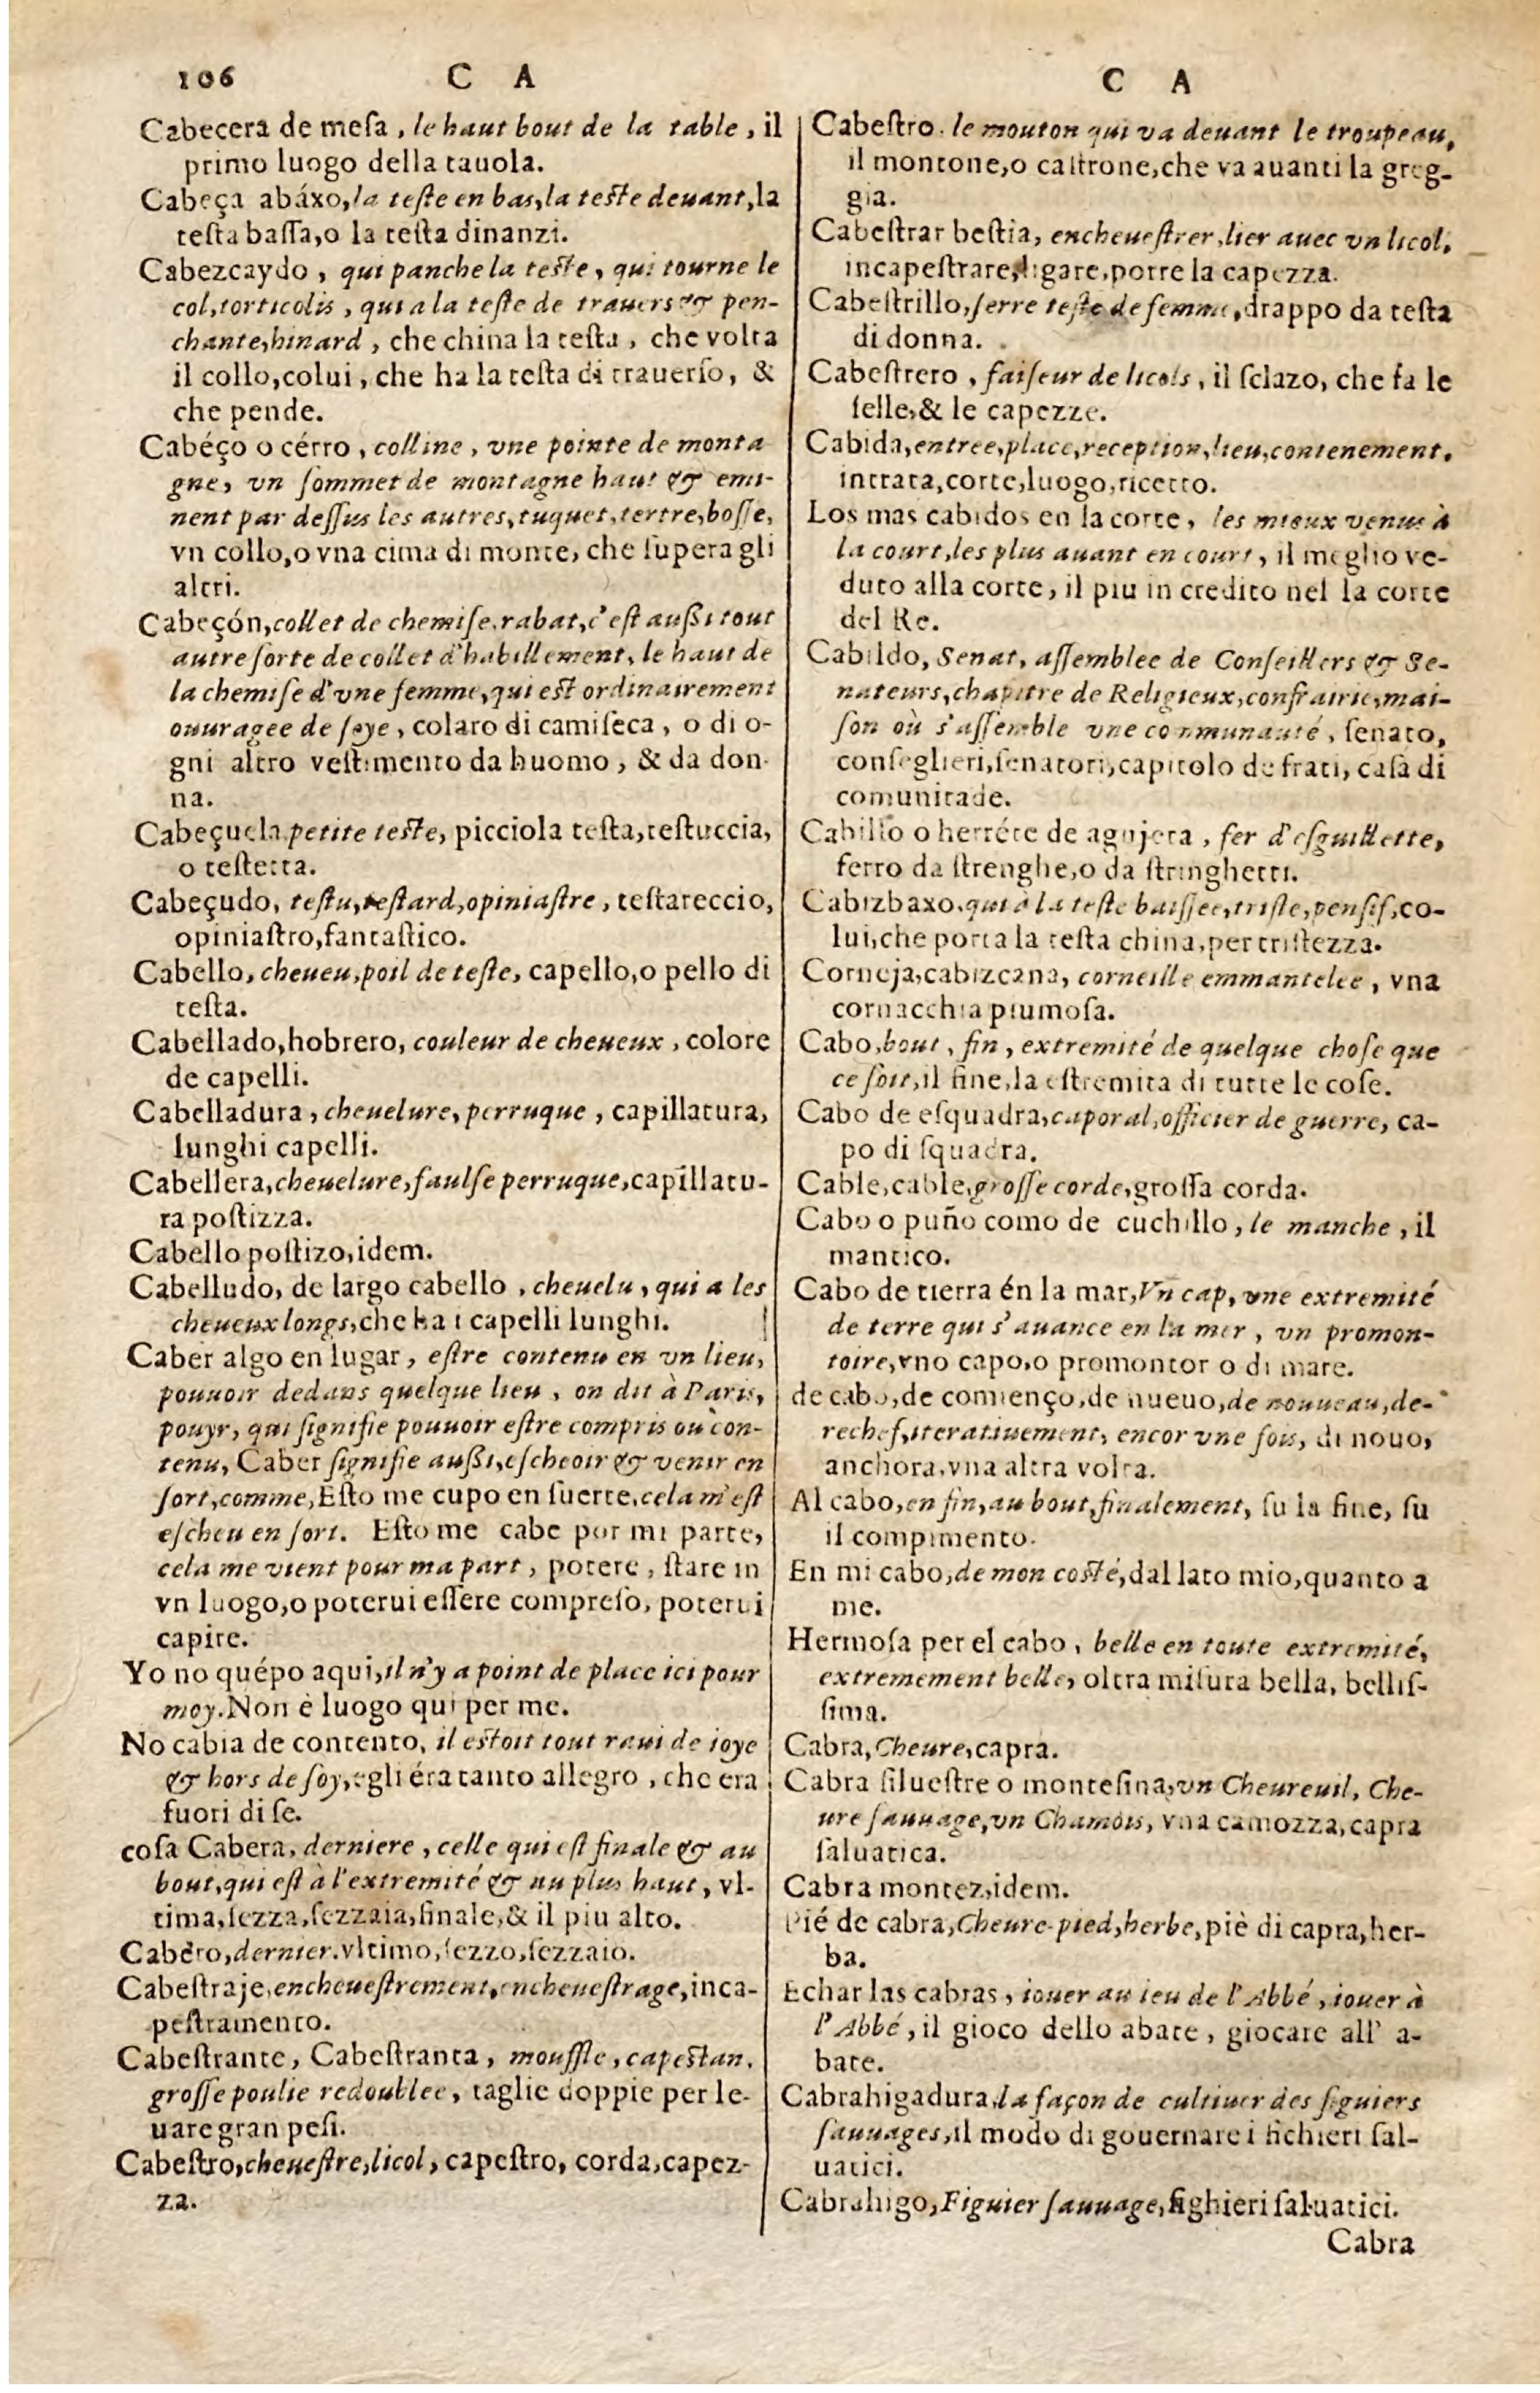 106 C A
Cabecera de meſa, le haut bout de la table, il
primo luogo della tauola.
Cabeça abáxo, la teſte en bas, la teſte deuant, la
teſta baſſa, o la teſta dinanzi.
Cabezcaydo, qui panche la teſte, qui tourne le
col, torticolis, qui a la teſte de trauers & pen-
chante, hinard, che china la teſta, che volta
il collo, colui, che ha la teſta di trauerſo, &
che pende.
Cabéço o cérro, colline, vne pointe de monta
gne, vn ſommet de montagne haut & emi-
nent par deſſus les autres, tuquet, tertre, boſſe,
vn collo, o vna cima di monte, che ſupera gli
altri.
Cabeçón, collet de chemiſe, rabat, c'eſt auſſi tout
autre ſorte de collet d'habillement, le haut de
la chemiſe d'vne femme, qui eſt ordinairement
ouuragee de ſoye, colaro di camiſeca, o di o-
gni altro veſtimento da huomo, & da don-
na.
Cabeçuela petite teſte, picciola teſta, teſtuccia,
o teſtetta.
Cabeçudo, teſtu, teſtard, opiniaſtre, teſtareccio,
opiniaſtro, fantaſtico.
Cabello, cheueu, poil de teſte, capello, o pello di
teſta.
Cabellado, hobrero, couleur de cheueux, colore
de capelli.
Cabelladura, cheuelure, perruque, capillatura,
lunghi capelli.
Cabellera, cheuelure, faulſe perruque, capillatu-
ra poſtizza.
Cabello poſtizo, idem.
Cabelludo, de largo cabello, cheuelu, qui a les
cheueux longs, che ha i capelli lunghi.
Caber algo en lugar, eſtre contenu en vn lieu,
pouuoir dedans quelque lieu, on dit à Paris,
pouyr, qui ſignifie pouuoir eſtre compris ou con-
tenu, Caber ſignifie auſſi, eſcheoir & venir en
ſort, comme, Eſto me cupo en ſuerte, cela m'eſt
eſcheu en ſort. Eſto me cabe por mi parte,
cela me vient pour ma part, potere, ſtare in
vn luogo, o poterui eſſere compreſo, poterui
capire.
Yo no quépo aqui, il n'y a point de place ici pour
moy. Non è luogo qui per me.
No cabia de contento, il eſtoit tout raui de ioye
& hors de ſoy, egli éra tanto allegro, che era
fuori di ſe.
coſa Cabera, derniere, celle qui eſt finale & au
bout, qui eſt à l'extremité & au plus haut, vl-
tima, ſezza, ſezzaia, finale, & il piu alto.
Cabèro, dernier. vltimo, ſezzo, ſezzaio.
Cabeſtraje, encheueſtrement, encheueſtrage, inca-
peſtramento.
Cabeſtrante, Cabeſtranta, mouffle, capeſtan,
groſſe poulie redoublee, taglie doppie per le-
uare gran peſi.
Cabeſtro, cheueſtre, licol, capeſtro, corda, capez-
za.
C A
Cabeſtro. le mouton qui va deuant le troupeau,
il montone, o caſtrone, che va auanti la greg-
gia.
Cabeſtrar beſtia, encheueſtrer, lier auec vn licol,
incapeſtrare, ligare, porre la capezza.
Cabeſtrillo, ſerre teſte de femme, drappo da teſta
di donna.
Cabeſtrero, faiſeur de licols, il ſelazo, che fa le
ſelle, & le capezze.
Cabida, entree, place, reception, lieu, contenement,
intrata, corte, luogo, ricetto.
Los mas cabidos en la corte, les mieux venus à
la court, les plus auant en court, il meglio ve-
duto alla corte, il piu in credito nel la corte
del Re.
Cabildo, Senat, aſſemblee de Conſeillers & Se-
nateurs, chapitre de Religieux, confrairie, mai-
ſon où s'aſſemble vne communauté, ſenato,
conſeglieri, ſenatori, capitolo de frati, caſa di
comunitade.
Cabillo o herréte de agujeta, fer d'eſguillette,
ferro da ſtrenghe, o da ſtringhetti.
Cabizbaxo, qui à la teſte baiſſee, triſte, penſif, co-
lui, che porta la teſta china, per triſtezza.
Corneja, cabizcana, corneille emmantelee, vna
cornacchia piumoſa.
Cabo, bout, fin, extremité de quelque choſe que
ce ſoit, il fine, la eſtremita di tutte le coſe.
Cabo de eſquadra, caporal, officier de guerre, ca-
po di ſquadra.
Cable, cable, groſſe corde, groſſa corda.
Cabo o puño como de cuchillo, le manche, il
mantico.
Cabo de tierra én la mar, Vn cap, vne extremité
de terre qui s'auance en la mer, vn promon-
toire, vno capo, o promontor o di mare.
de cabo, de comienço, de nueuo, de nouueau, de-
rechef, iteratiuement, encor vne fois, di nouo,
anchora, vna altra volta.
Al cabo, en fin, au bout, finalement, ſu la fine, ſu
il compimento.
En mi cabo, de mon coſté, dal lato mio, quanto a
me.
Hermoſa per el cabo, belle en toute extremité,
extremement belle, oltra miſura bella, belliſ-
ſima.
Cabra, Cheure, capra.
Cabra ſilueſtre o monteſina, vn Cheureuil, Che-
ure ſauuage, vn Chamois, vna camozza, capra
ſaluatica.
Cabra montez, idem.
Pié de cabra, Cheure-pied, herbe, piè di capra, her-
ba.
Echar las cabras, iouer au ieu de l'Abbé, iouer à
l'Abbé, il gioco dello abate, giocare all' a-
bate.
Cabrahigadura, la façon de cultiuer des figuiers
ſauuages, il modo di gouernare i fichieri ſal-
uatici.
Cabrahigo, Figuier ſauuage, fighieri ſaluatici.
Cabra